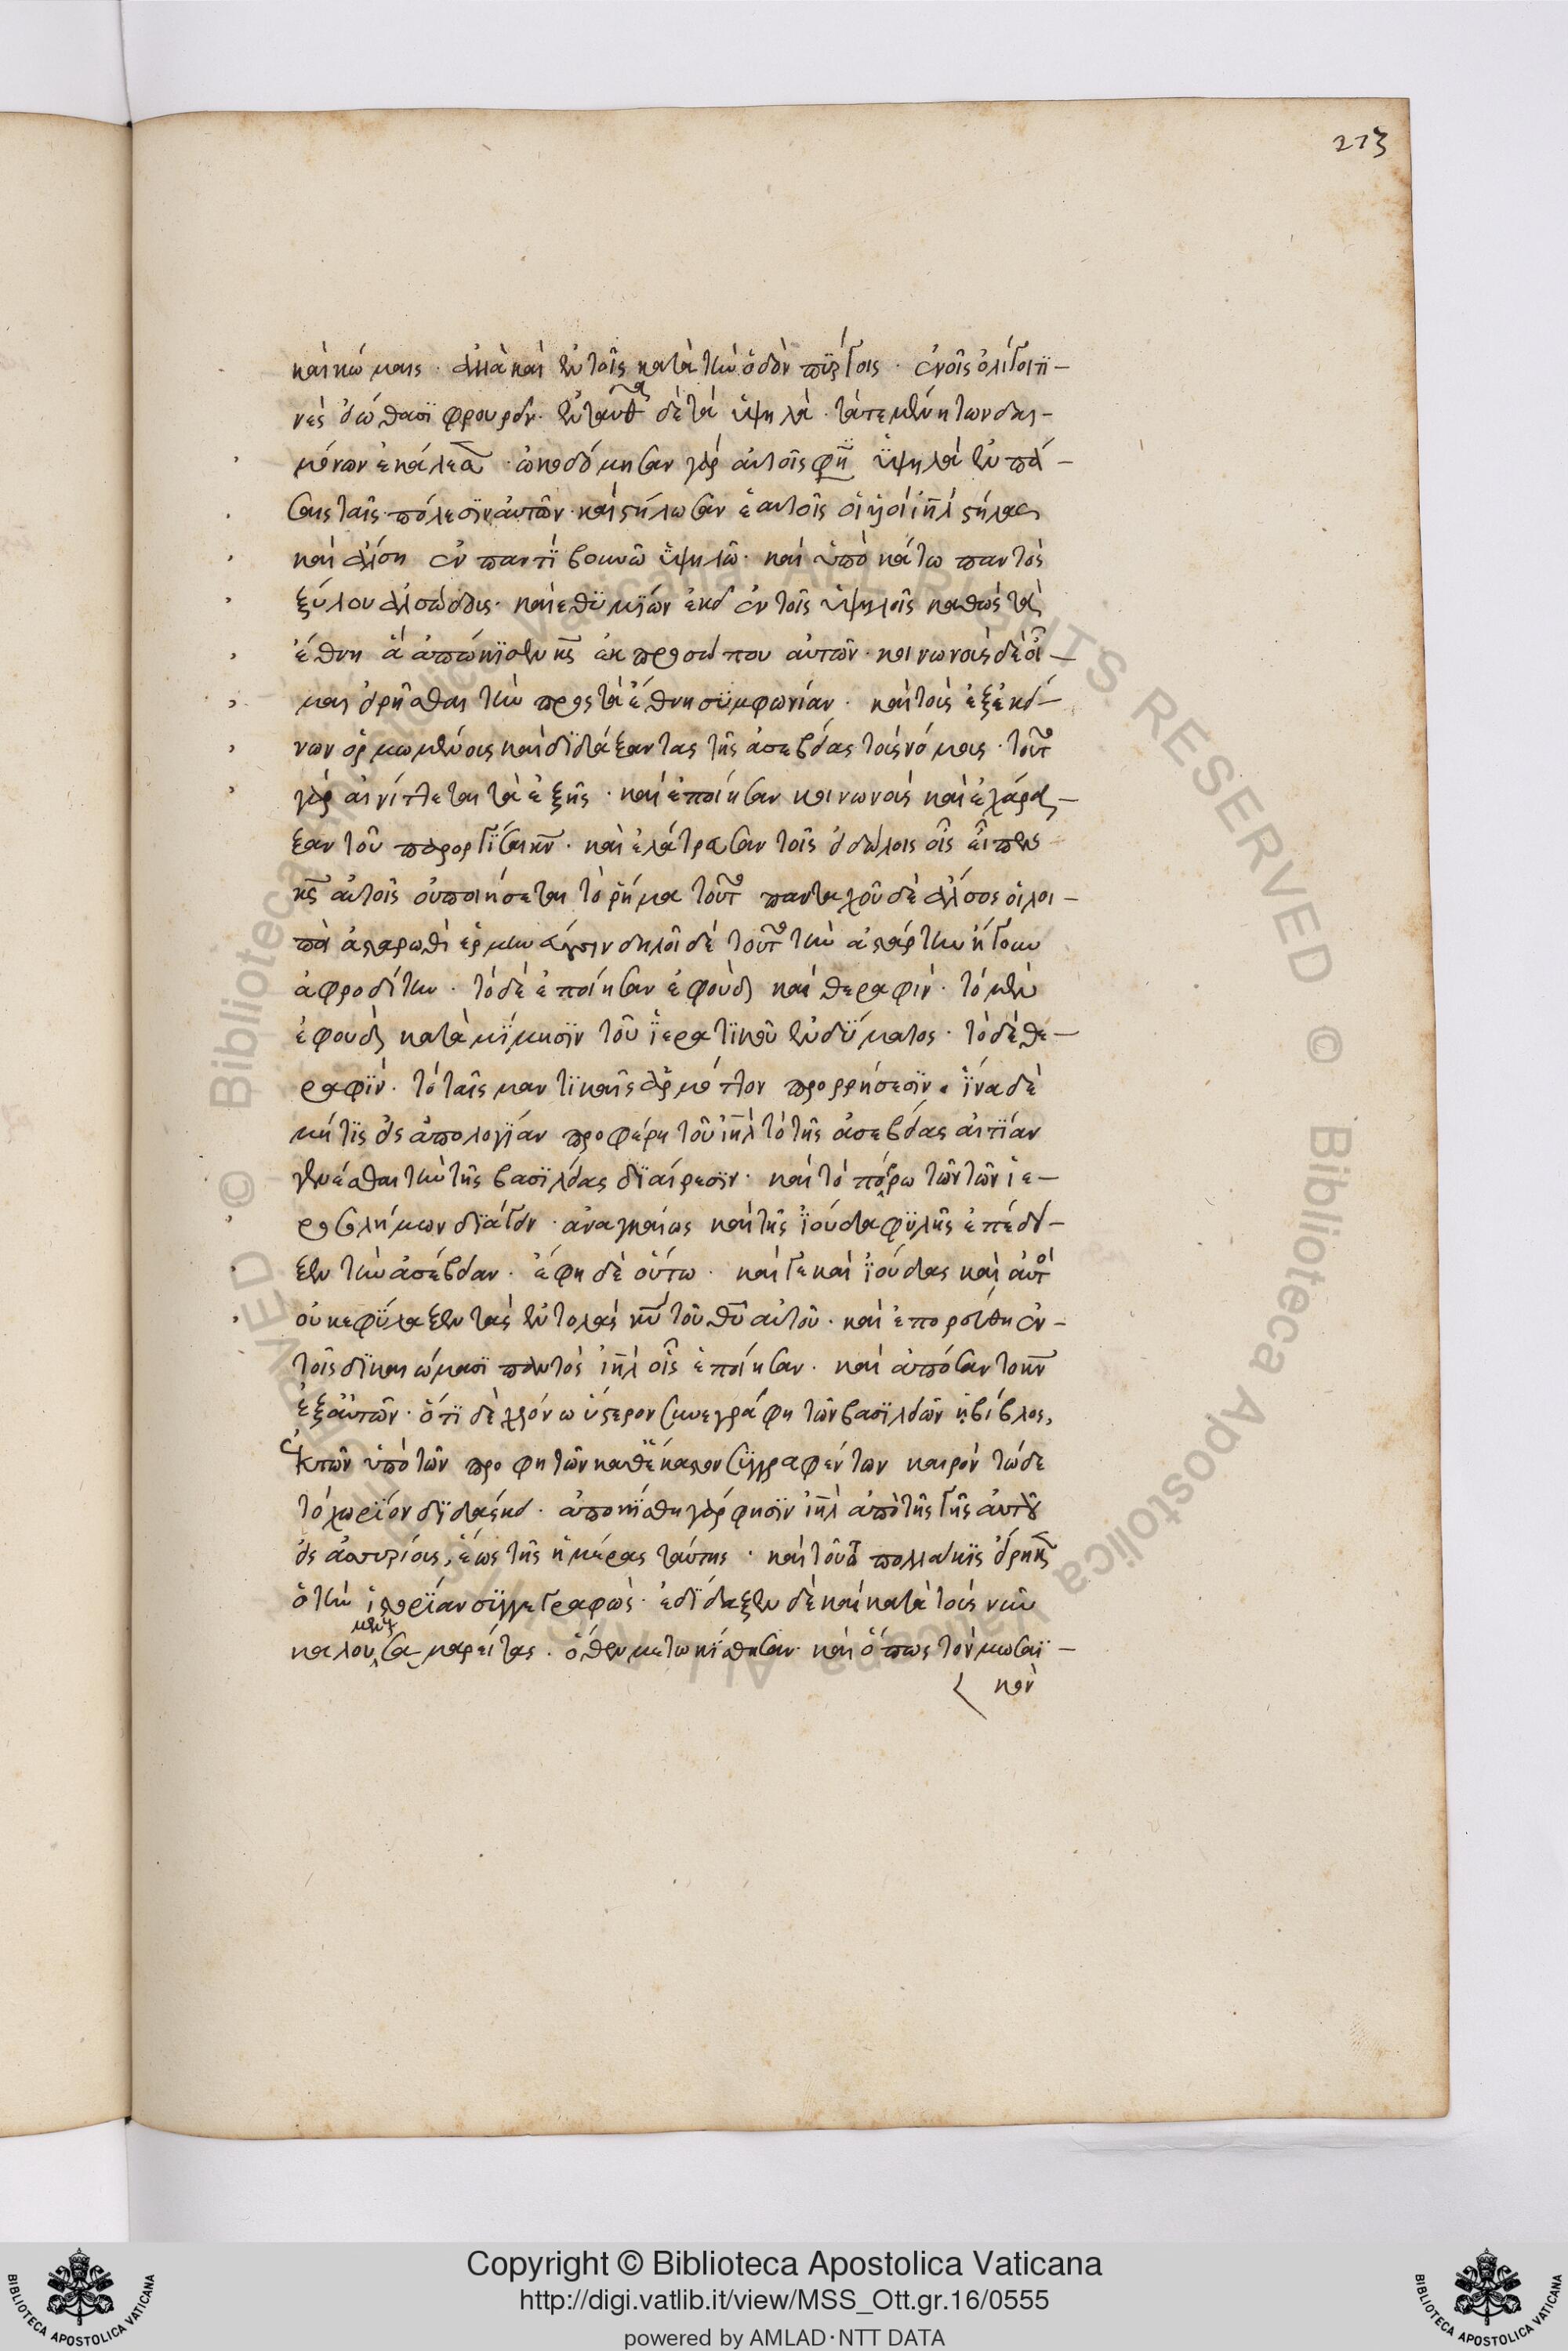 273
καὶ κώμαις · ἀλλὰ καὶ ἐν τοῖς κατὰ τὴν ὁδὸν πύργοις · ἐν οἷς ὀλίγοι τι-
νὲς εἰώθασι φρουρεῖν · ἐνταῦθα δὲ τὰ ὑψηλὰ · τὰ τεμένη τῶν δαι-
μόνων ἐκάλεσε · ὠκοδόμησαν γὰρ αὐτοῖς φη ὑψηλὰ ἐν πά-
σαις ταῖς πόλεσιν αὐτῶν · καὶ ἐστήλωσαν ἑαυτοῖς οἱ υἱοὶ ιηλ στήλας
καὶ ἄλση ἐν παντὶ βουνῶ ὑψηλῶ · καὶ ὑποκάτω παντὸς
ξύλου ἀλσώδους · καὶ ἐθυμίων ἐκεῖ ἐν τοῖς ὑψηλοῖς καθὼς τὰ
ἔθνη ἃ ἀπώκισεν κς ἐκ προσώπου αὐτῶν · κοινωνοὺς δὲ οἶ-
μαι εἰρῆσθαι τὴν πρὸς τὰ ἔθνη συμφωνίαν · καὶ τοὺς ἐξ ἐκεί-
νων ὁρμωμένους καὶ διδάξαντας τῆς ἀσεβείας τοὺς νόμους · τοῦτο
γὰρ αἰνίττεται τὰ ἑξῆς · καὶ ἐποίησαν κοινωνοὺς καὶ ἐχάρα-
ξαν τοῦ παροργίσαι κν · καὶ ἐλάτρευσαν τοῖς εἰδώλοις οἷς εἶπεν
κς αὐτοῖς οὐ ποιήσεται τὸ ῥῆμα τοῦτο πανταχοῦ δὲ ἄλσος οἱ λοι-
ποὶ ἀσταρωθὶ ἑρμηνεύουσιν δηλοῖ δὲ τοῦτο τὴν ἀστάρτην ἤγουν
ἀφροδίτην · τὸ δὲ ἐποίησαν ἐφοὺδ καὶ θεραφίν · τὸ μὲν
ἐφοὺδ κατὰ μίμησιν τοῦ ἱερατικοῦ ἐνδύματος · τὸ δὲ θε-
ραφίν · τὸ ταῖς μαντικαῖς ἁρμόττον προρρήσεσιν · ἵνα δὲ
μή τις εἰς ἀπολογίαν προφέρη τοῦ ιηλ τὸ τῆς ἀσεβείας αἰτίαν
γενέσθαι τὴν τῆς βασιλείας διαίρεσιν · καὶ τὸ πόρρω τῶν τῶν ἱε-
ροσολήμων διάγειν · ἀναγκαίως καὶ τῆς ἰούδα φυλῆς ἐπέδει-
ξεν τὴν ἀσέβειαν · ἔφη δὲ οὕτω · καί γε καὶ ἰούδας καὶ αὐτὸς
οὐκ ἐφύλαξεν τὰς ἐντολὰς κυ τοῦ θυ αὐτοῦ · καὶ ἐπορεύθη ἐν
τοῖς δικαιώμασι παντὸς ιηλ οἷς ἐποίησαν · καὶ ἀπώσαντο κν
ἐξ αὐτῶν · ὅτι δὲ χρόνω ὕστερον συνεγράφη τῶν βασιλειῶν ἡ βίβλος,
ἐκ τῶν ὑπὸ τῶν προφητῶν καθ' ἕκαστον συγγραφέντων καιρὸν τῶδε
τὸ χωρίον διδάσκει · ἀπωκίσθη γὰρ φησὶν ιηλ ἀπὸ τῆς γῆς αὐτοῦ
εἰς ἀσυρίους, ἕως τῆς ἡμέρας ταύτης · καὶ τοῦτο πολλάκις εἴρηκε
ὁ τὴν ἱστορίαν συγγεγραφὼς · ἐδίδαξεν δὲ καὶ κατὰ τοὺς νῦν
καλουμένους σαμαρείτας · ὅθεν μετωκίσθησαν καὶ ὅπως τὸν μωσαϊ-
κὸν